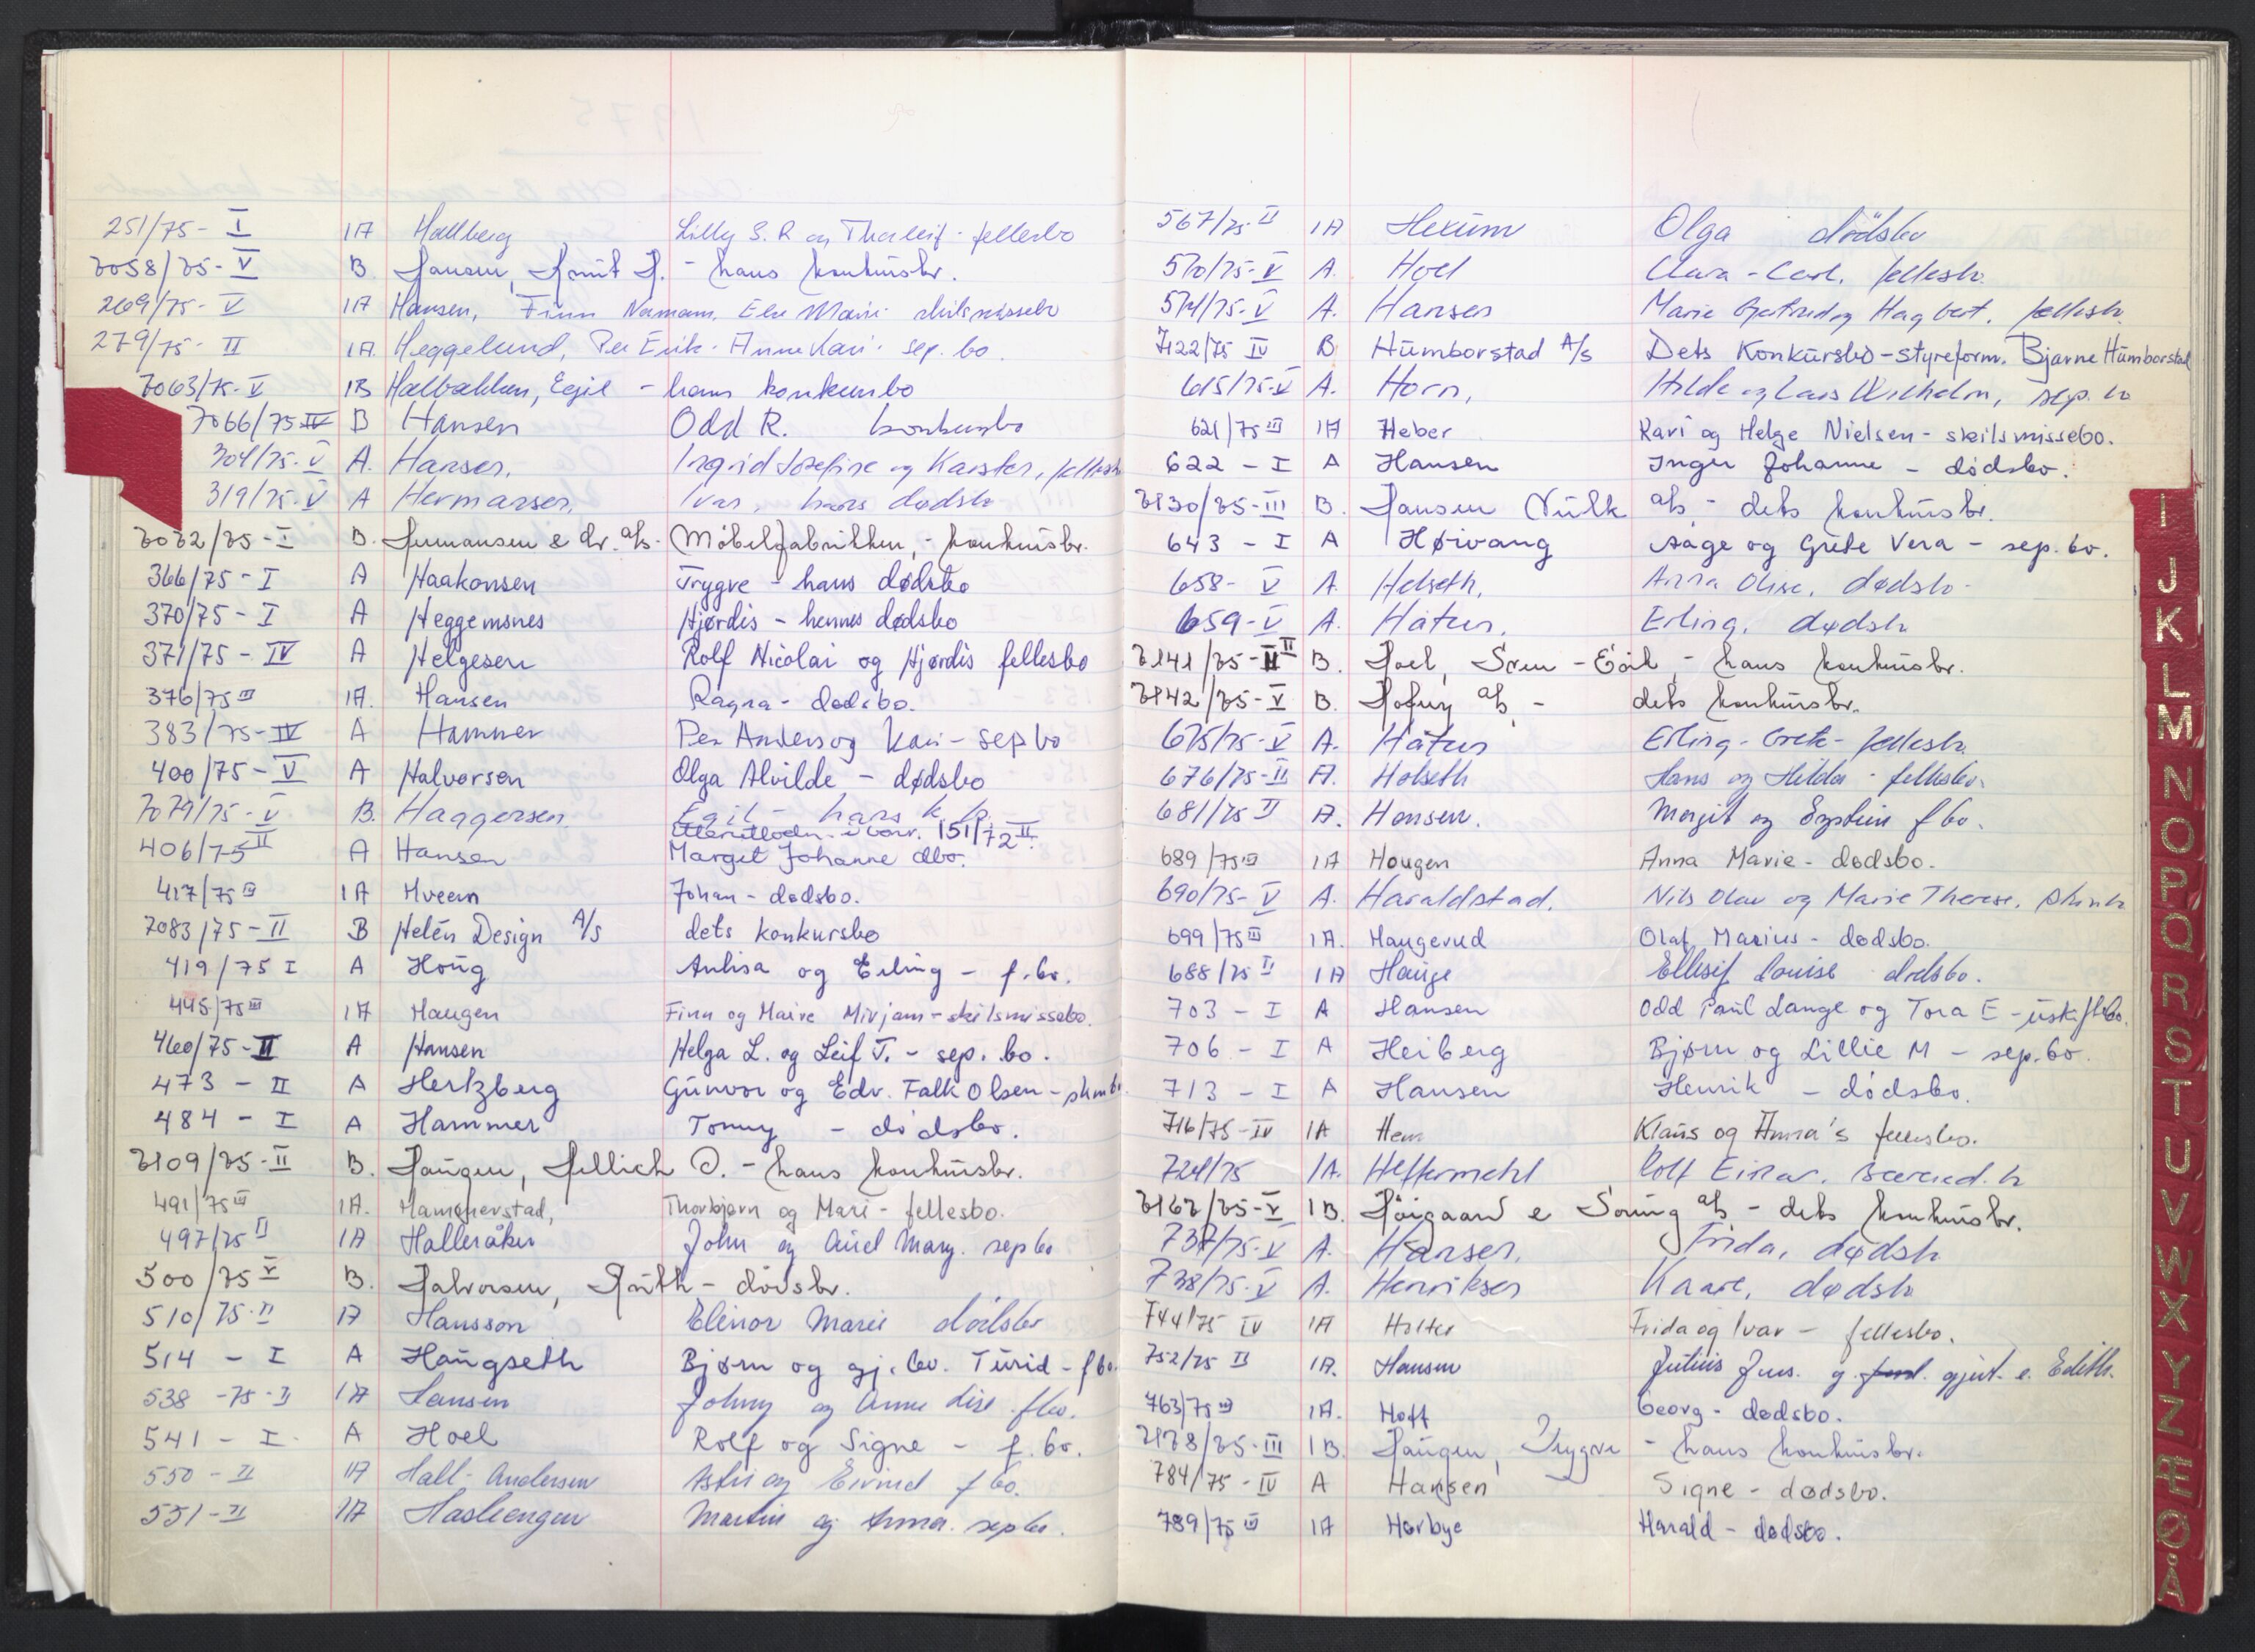 251/75 - I IA Hallberg Lilly S. R og Thorleif - fellesbo
7058/75 - V B. Hansen, Knut H. - hans konkursbo.
269/75 - V IA Hansen, Finn Normann, Else Marie skilsmissebo
279/75 - II IA. Heggelund, Per Erik - Anne Kari - sep. bo.
7063/75 - V IB Hælbakken, Egil - hans konkursbo
7066/75 IV B Hansen Odd R. konkursbo
304/75 - V A. Hansen, Ingrid Josefine og Karsten, fellesb
319/75 - V A Hermansen, Ivar, hans dødsb
7072/75 - I B. Hermansen & Co. a/s - Møbelfabrikken, - konkursbo.
366/75 - I A Haakonsen Trygve - hans dødsbo
370/75 - I A Heggemsnes Hjørdis - hennes dødsbo
371/75 - IV A Helgesen Rolf Nicolai og Hjørdis fellesbo
376/75 III IA. Hansen Ragna - dødsbo.
383/75 - IV A Hammer Per Anders og Kari - sep bo
400/75 - V A Halvorsen Olga Alvilde - dødsbo
7079/75 - V B. Haggersen Egil - hans k. b.
151/72 II.
406/75 II A Hansen Margit Johanne dbo.
417/75 III IA Hveem Johan - dødsbo.
7083/75 - II B Helén Design A/S dets konkursbo
419/75 I A Houg Anlisa og Erling - f. bo.
445/75 III IA Haugen Finn og Maire Mirjam - skilsmissebo.
460/75 - II A Hansen Helga L. og Leif T. - sep. bo.
473 - II A Hertzberg Gunvor og Edv. Falk Olsen - skmbo
484 - I A Hammer Tonny - dødsbo.
7109/75 - II B. Haugen, Hellich O. - hans konkursbo.
491/75 III IA. Hamnerstad, Thorbjørn og Mari - fellesbo.
497/75 II IA Halleråker John og Aud Mary. sep bo
500/75 V B. Halvorsen, Ruth - dødsbo.
510/75 - II IA Hansson Elinor Marie dødsbo
514 - I A Haugseth Bjørn og gj. lev. Turid - f bo.
538 - 75 - II IA Hansen Johnny og Anne Lise f bo.
541 - I. A Hoel Rolf og Signe - f. bo.
550 - II IA Hall-Andersen Astri og Eivind f bo.
551 - II IA Hasliengen Martin og Anna. sepbo.
567/75 II IA Hexum Olga dødsbo
570/75 - V A. Hoel Clara - Carl, fellesb.
574/75 - V A. Hansen Marie Gjertrud og Hagbart, fellesb.
7122/75 IV B Humborstad A/s Dets Konkursbo - styreform. Bjarne Humborstad
615/75 - V A. Horn, Hilde og Lars Wilhelm, sep. bo
621/75 III IA Heber Kari og Helge Nielsen - skilsmissebo.
622 - I A Hansen Inger Johanne - dødsbo.
7130/75 - III B. Hansen Vulk a/s - dets konkursbo.
643 - I A Høivang Aage og Grete Vera - sep. bo.
658 - V A. Helseth, Anna Olise, dødsbo -
659 - V A. Håtun, Erling, dødsb
7141/75 - II B. Hoel, Sven - Eril, - hans konkursbo.
7142/75 - V B. Hofuy a/s - dets konkursbo.
675/75 - V A. Håtun Erling - Grete - fellesb.
676/75 - II A. Holseth Hans og Hilda - fellesbo.
681/75 II A. Hansen. Margit og Eystein f bo.
689/75 III IA Haugen Anna Marie - dødsbo.
690/75 - V A. Haraldstad, Nils Olav og Marie Therese, skmb
699/75 III IA. Haugerud Olaf Marius - dødsbo.
688/75 II IA Hauge Ellisif Louise dødsbo.
703 - I A Hansen Odd Paul Lange og Tora E - uskiftebo.
706 - I A Heiberg Bjørn og Lillie M - sep. bo.
713 - I A Hansen Henrik - dødsbo.
716/75 - IV IA Hem Klaus og Anna's fellesbo.
724/75 IA. Heffermehl Rolf Einar,
7167/75 - V IB. Høigaard & Soring a/s - dets konkursbo.
737/75 - V A. Hansen, Frida, dødsb
738/75 - V A. Henriksen Kaare, dødsb
744/75 IV IA Holter Frida og Ivar - fellesbo.
752/75 II IA. Hansen Julius Jens. g. gjenl. e. Edith.
763/75 III IA. Hoff Georg - dødsbo.
7178/75 - III IB. Haugen, Trygve - hans konkursbo.
784/75 - IV A Hansen Signe - dødsbo.
789/75 III IA Hørbye Harald - dødsbo.
I
J
K
L
M
N
O
P
Q
R
S
T
U
V
W
X
Y
Z
Æ
Ø
Å